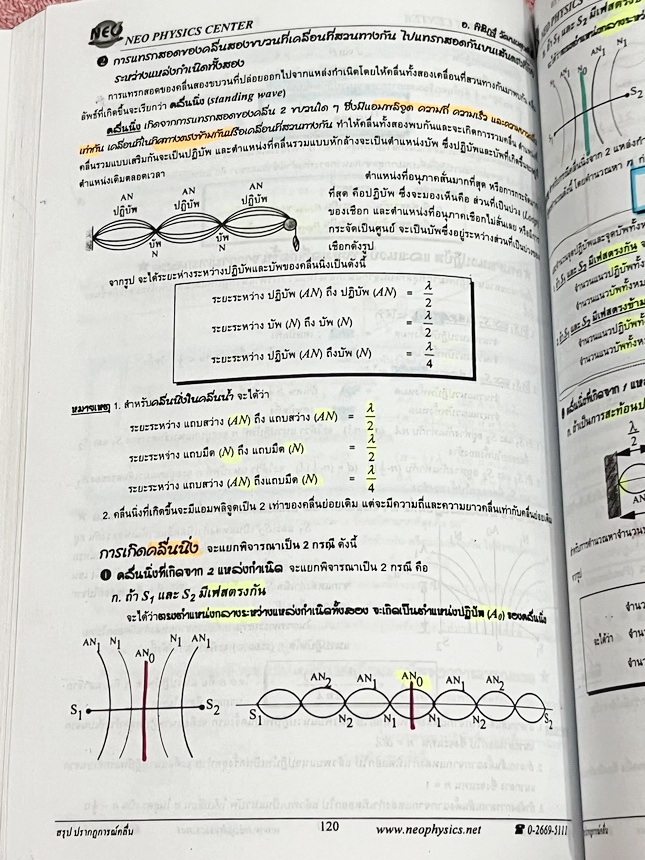 NEO
NEO PHYSICS CENTER
❷ การแทรกสอดของคลื่นสองขบวนที่เคลื่อนที่สวนทางกัน ไปแทรกสอดกันบนเส้นตรง
ระหว่างแหล่งกำเนิดทั้งสอง
การแทรกสอดของคลื่นสองขบวนที่ปล่อยออกไปจากแหล่งกำเนิดโดยให้คลื่นทั้งสองเคลื่อนที่สวนทางกันมาพบกัน
ลัพธ์ที่เกิดขึ้นจะเรียกว่า คลื่นนิ่ง (standing wave)
คลื่นนิ่ง เกิดจากการแทรกสอดของคลื่น 2 ขบวนใด ๆ ซึ่งมีแอมพลิจูด ความถี่ ความเร็ว และความยาวคลื่น
เท่ากัน เคลื่อนที่ในทิศทางตรงข้ามกันหรือเคลื่อนที่สวนทางกัน ทำให้คลื่นทั้งสองพบกันและจะเกิดการรวมคลื่น
คลื่นรวมแบบเสริมกันจะเป็นปฏิบัพ และตำแหน่งที่คลื่นรวมแบบหักล้างจะเป็นตำแหน่งบัพ ซึ่งปฏิบัพและบัพที่เกิดขึ้นจะอยู่
ตำแหน่งเดิมตลอดเวลา
AN
ปฏิบัพ
AN
ปฏิบัพ
AN
ปฏิบัพ
บัพ
N
บัพ
N
ตำแหน่งที่อนุภาคสั่นมากที่สุด หรือการกระจัด
ที่สุด คือปฏิบัพ ซึ่งจะมองเห็นคือ ส่วนที่เป็นบ่วง (Loop)
ของเชือก และตำแหน่งที่อนุภาคเชือกไม่สั่นเลย หรือมีการ
กระจัดเป็นศูนย์ จะเป็นบัพซึ่งอยู่ระหว่างส่วนที่เป็นบ่วงของ
เชือกดังรูป
จากรูป จะได้ระยะห่างระหว่างปฏิบัพและบัพของคลื่นนิ่งเป็นดังนี้
ระยะระหว่าง ปฏิบัพ (AN) ถึง ปฏิบัพ (AN) = λ/2
ระยะระหว่าง บัพ (N) ถึง บัพ (N) = λ/2
ระยะระหว่าง ปฏิบัพ (AN) ถึงบัพ (N) = λ/4
หมายเหตุ 1. สำหรับคลื่นนิ่งในคลื่นน้ำ จะได้ว่า
ระยะระหว่าง แถบสว่าง (AN) ถึง แถบสว่าง (AN) = λ/2
ระยะระหว่าง แถบมืด (N) ถึง แถบมืด (N) = λ/2
ระยะระหว่าง แถบสว่าง (AN) ถึงแถบมืด (N) = λ/4
2. คลื่นนิ่งที่เกิดขึ้นจะมีแอมพลิจูดเป็น 2 เท่าของคลื่นย่อยเดิม แต่จะมีความถี่และความยาวคลื่นเท่ากับคลื่นย่อยเดิม
การเกิดคลื่นนิ่ง จะแยกพิจารณาเป็น 2 กรณี ดังนี้
❶ คลื่นนิ่งที่เกิดจาก 2 แหล่งกำเนิด จะแยกพิจารณาเป็น 2 กรณี คือ
ก. ถ้า S₁ และ S₂ มีเฟสตรงกัน
จะได้ว่าตรงตำแหน่งกลางระหว่างแหล่งกำเนิดทั้งสอง จะเกิดเป็นตำแหน่งปฏิบัพ (A₀) ของคลื่นนิ่ง
AN₁ N₁ AN₀ N₁ AN₁
S₁ S₂
AN₂ AN₁ AN₀ AN₁ AN₂
S₁ N₂ N₁ N₁ N₂ S₂
สรุป ปรากฏการณ์คลื่น
120
www.neophysics.net
☎ 0-2669-5111